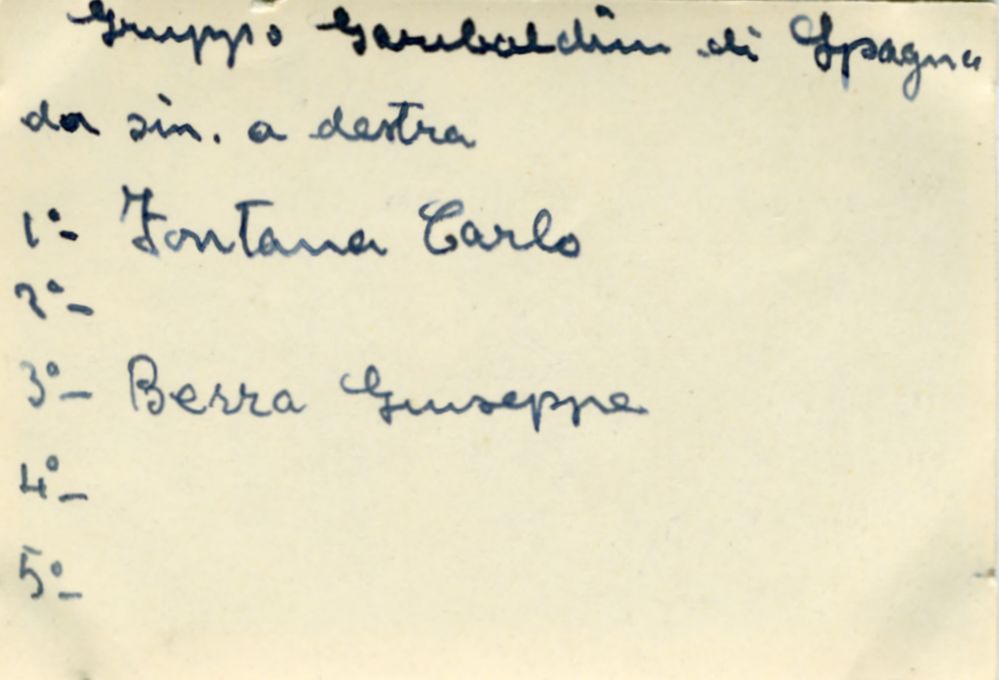 Gruppo Garibaldini di Spagna
da sin. a destra
1°- Fontana Carlo
2°-
3°- Berra Giuseppe
4°-
5°-